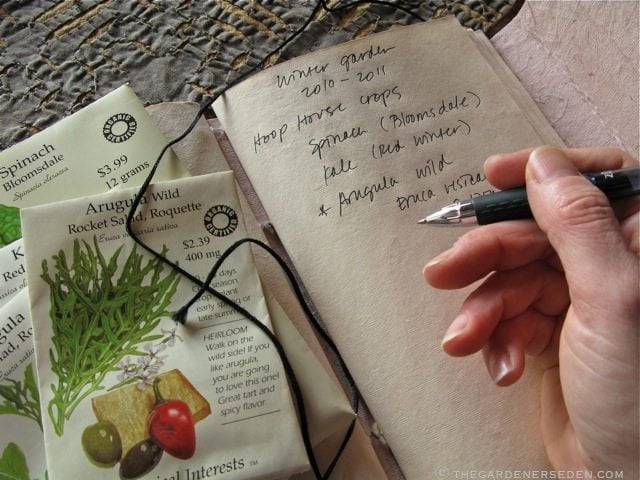 Winter garden
2010 - 2011
Hoop House crops
Spinach (Bloomsdale)
Kale (Red Winter)
* Arugula wild
Eruca
Spinach
Bloomsdale
Spinacia oleracea
ORGANIC
CERTIFIED
$3.99
12 grams
K
Red
Arugula Wild
Rocket Salad, Roquette
Eruca sativa
ORGANIC
CERTIFIED
$2.39
400 mg
days
season
plant
early spring or
late summer
HEIRLOOM
Walk on the
wild side! If you
like arugula,
you are going
to love this one!
Great tart and
spicy flavor
Interests ™
© THEGARDENERSEDEN.COM